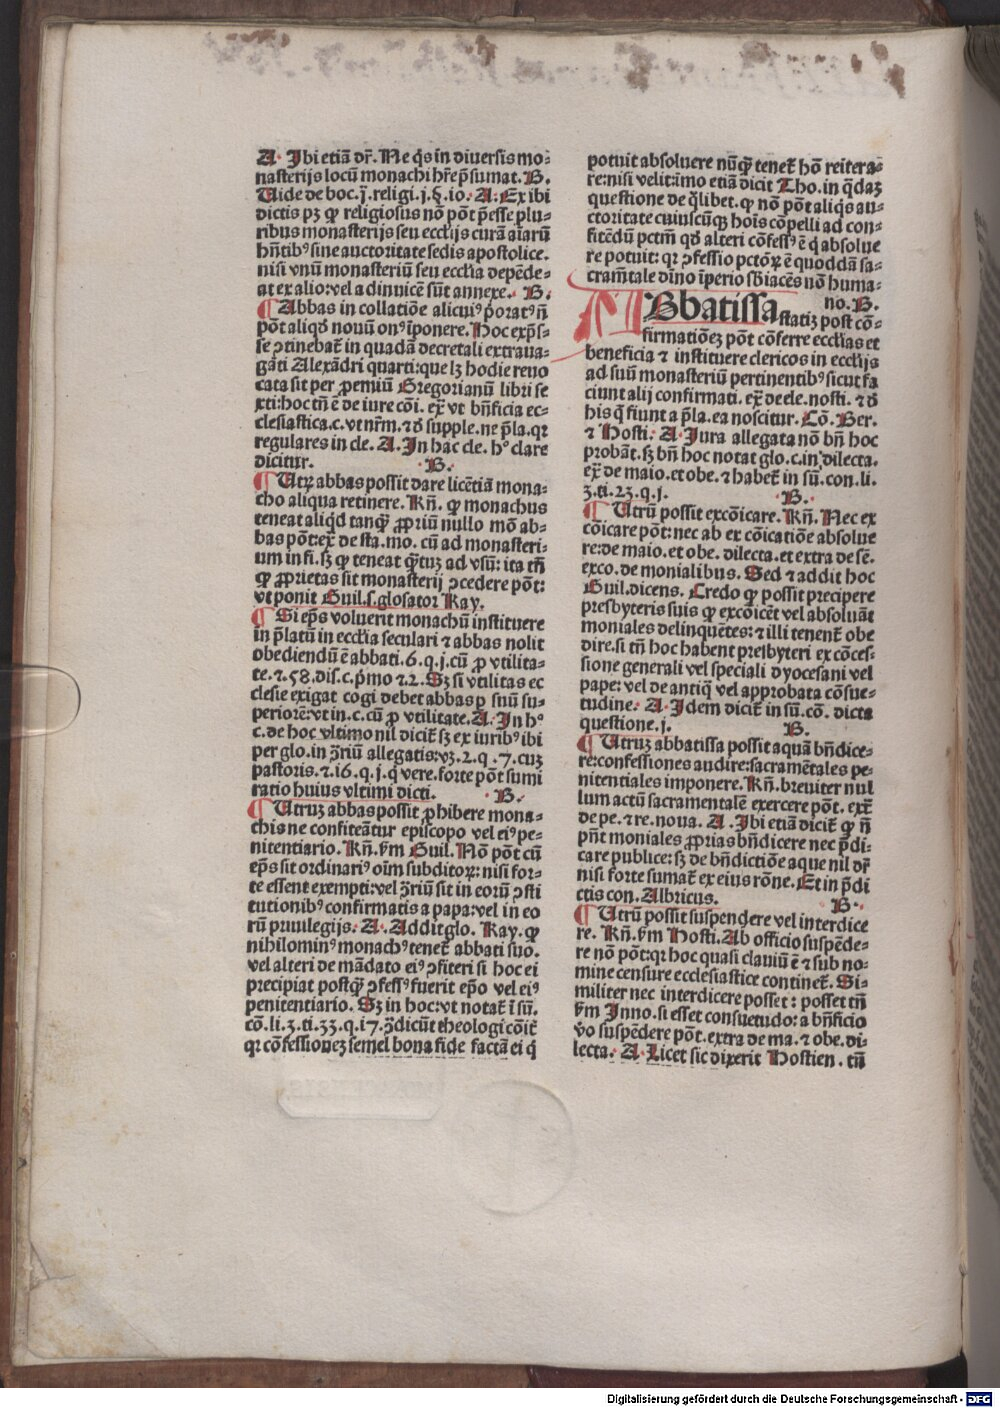 A. Ibi etiã dr̃. Ne q̃s in diuersis mo-
nasterijs locũ monachi hr̃e p̃sumat. B.
Uide de hoc. j̃. religi. j. §. io. A: Ex ibi
dictis pꝫ ꝙ religiosus nõ põt p̃esse plu-
ribus monasterijs seu eccl'ijs curã aĩarũ
hñtibꝰ sine auctoritate sedis apostolice.
nisi vnũ monasteriũ seu eccl'ia depẽde-
at ex alio: vel adinuicẽ sũt annexe. B.
¶ Abbas in collatiõe alicuiꝰ p̱oratꝰ ñ
põt aliqd̃ nouũ onꝰ ĩponere. Hoc exp̃s-
se ꝯtinebat̃ in quadã decretali extraua-
gãti Alexãdri quarti: que lꝫ hodie reuo
cata sit per ꝓemiũ Gregorianũ libri se
xti: hoc tñ ẽ de iure cõi. ex̃ vt bñficia ec-
clesiastica. c. vt nr̃m. ⁊ d̃ supple. ne p̃la. qꝛ
regulares in cle. A. In hac cle. hº clare
dicitur. B.
¶ Utꝝ abbas possit dare licẽtiã mona-
cho aliqua retinere. Rñ. ꝙ monachus
teneat aliqd̃ tanq̃ ꝓpriũ nullo mõ ab-
bas põt: ex̃ de sta. mo. cũ ad monasteri-
um in fi. sꝫ ꝙ teneat q̃tuꝫ ad vsũ: ita tñ
ꝙ ꝓprietas sit monasterij ꝯcedere põt:
vt ponit Guil. s. glosator Ray.
¶ Si ep̃s voluerit monachũ instituere
in p̃latũ in eccl'ia seculari ⁊ abbas nolit
obediendũ ẽ abbati. 6. q. j. cũ ꝓ vtilita-
te. ⁊. 58. dis. c. p̃mo ⁊. 2. Sꝫ si vtilitas ec
clesie exigat cogi debet abbas p̱ snũ su-
periorẽ: vt in. c. cũ ꝓ vtilitate. A. In hº
c. de hoc vltimo nil dicit̃ sꝫ ex iuribꝰ ibi
per glo. in ꝯriũ allegatis: vꝫ. 2. q. 7. cuꝫ
pastoris. ⁊. 16. q. j. q̃ vere. forte põt sumi
ratio huius vltimi dicti. B.
¶ Utruꝫ abbas possit ꝓhibere mona-
chis ne confiteãtur episcopo vel eiꝰ pe-
nitentiario. Rñ. ẜm Guil. Nõ põt cũ
ep̃s sit ordinariꝰ oĩm subditoꝝ: nisi for-
te essent exempti: vel ꝯriũ sit in eorũ ꝯsti
tutionibꝰ confirmatis a papa: vel in eo
rũ priuilegijs. A. Addit glo. Ray. ꝙ
nihilominꝰ monachꝰ tenet̃ abbati suo.
vel alteri de mãdato eiꝰ ꝯfiteri si hoc ei
precipiat postq̃ ꝯfessꝰ fuerit ep̃o vel eiꝰ
penitentiario. Sꝫ in hoc: vt notat̃ ĩ sũ.
cõ. li. 3. ti. 33. q. 17. ꝯ̃dicũt theologi cõit̃
qꝛ cõfessioneꝫ semel bona fide factã ei q̃
potuit absoluere nũq̃ tenet̃ hõ reitera-
re: nisi velit: ĩmo etiã dicit Tho. in q̃daꝫ
questione de q̃libet. ꝙ nõ põt aliq̃s au-
ctoritate cuiuscũq̃ hoĩs cõpelli ad con-
fitẽdũ pctm̃ qd̃ alteri cõfessꝰ ẽ q̃ absolue
re potuit: qꝛ ꝯfessio pctõꝝ ẽ quoddã sa-
cram̃tale dĩno ĩperio sb̃iacẽs nõ huma-
no. B.
ABbatissa statiꝫ post cõ-
firmatiõeꝫ põt cõferre eccl'ias et
beneficia ⁊ instituere clericos in eccl'ijs
ad suũ monasteriũ pertinentibꝰ sicut fa
ciunt alij confirmati. ex̃ de ele. nosti. ⁊ d̃
his q̃ fiunt a p̃la. ea noscitur. Cõ. Ber.
⁊ Hosti. A. Iura allegata nõ bñ hoc
probãt. sꝫ bñ hoc notat glo. c. in dilecta.
ex̃ de maio. et obe. ⁊ habet̃ in sũ. con. li.
3. ti. 23. q. j. B.
¶ Utrũ possit excõicare. Rñ. Nec ex
cõicare põt: nec ab ex cõicatiõe absolue
re: de maio. et obe. dilecta. et extra de sẽ.
exco. de monialibus. Sed ⁊ addit hoc
Guil. dicens. Credo ꝙ possit precipere
presbyteris suis ꝙ excõicẽt vel absoluãt
moniales delinquẽtes: ⁊ illi tenent̃ obe
dire. si tñ hoc habent presbyteri ex cõces-
sione generali vel speciali dyocesani vel
pape: vel de antiq̃ vel approbata cõsue-
tudine. A. Idem dicit̃ in sũ. cõ. dicta
questione. j. B.
¶ Utruꝫ abbatissa possit aquã bñdice-
re: confessiones audire: sacramẽtales pe-
nitentiales imponere. Rñ. breuiter nul
lum actũ sacramentalẽ exercere põt. ext̃
de pe. ⁊ re. noua. A. Ibi etiã dicit̃ ꝙ ñ
pñt moniales ꝓprias bñdicere nec p̃di-
care publice: sꝫ de bñdictiõe aque nil dr̃
nisi forte sumat̃ ex eius rõne. Et in p̃di
ctis con. Albricus. B.
¶ Utrũ possit suspendere vel interdice
re. Rñ. ẜm Hosti. Ab officio suspẽde-
re nõ põt: qꝛ hoc quasi clauiũ ẽ ⁊ sub no-
mine censure ecclesiastice continet̃. Si-
militer nec interdicere posset: posset tñ
ẜm Inno. si esset consuetudo: a bñficio
vo suspẽdere põt. extra de ma. ⁊ obe. di-
lecta. A. Licet sic dixerit Hostien. tñ
Digitalisierung gefördert durch die Deutsche Forschungsgemeinschaft - DFG